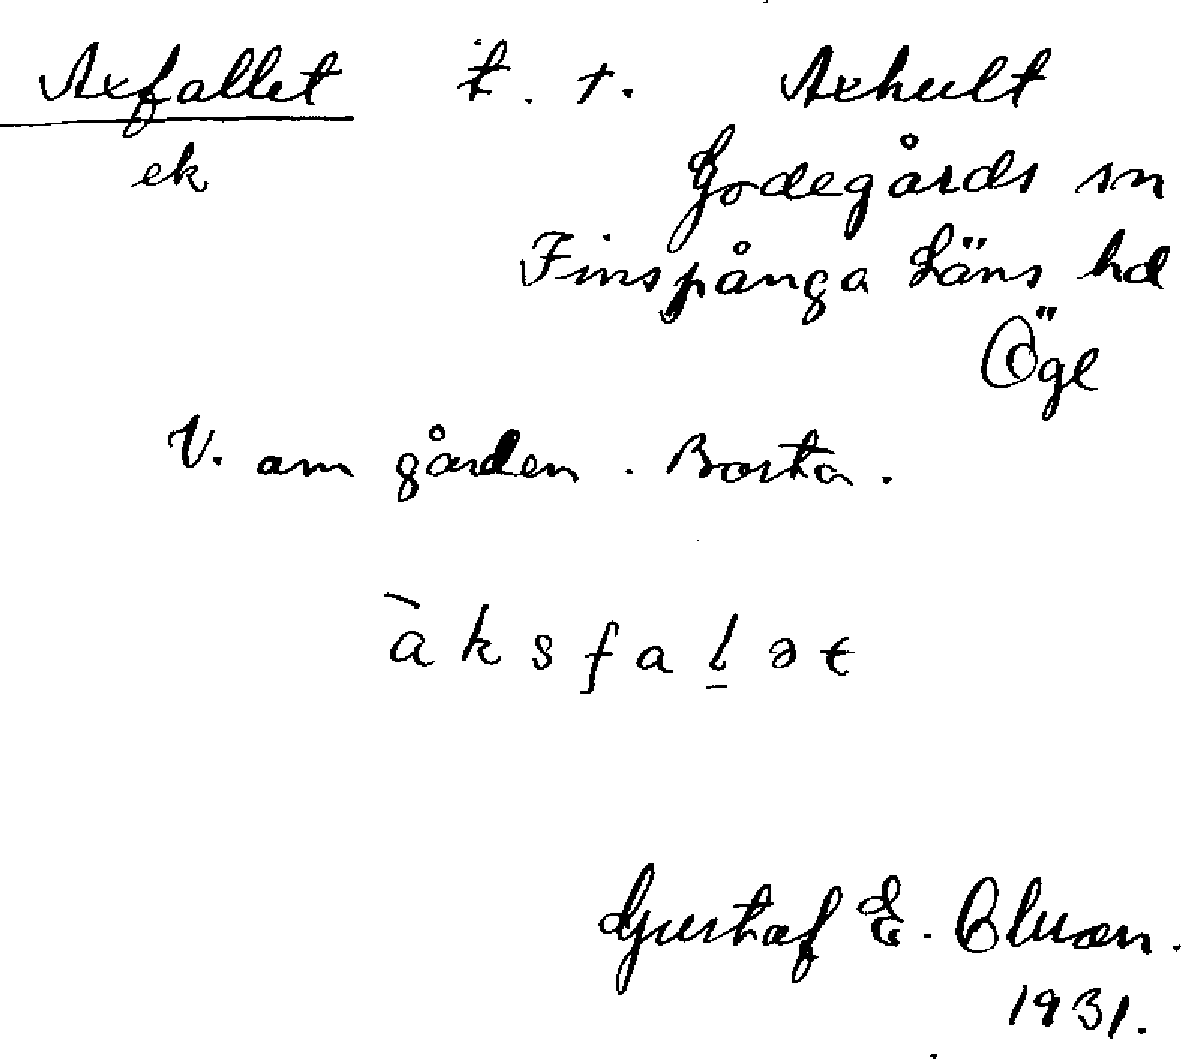 Axfallet t. r. Axhult
ek Godegårds sn
Finspånga Läns hd
Ögl
V. om gården. Borta.
àksfaḻət
Gustaf E.
1931.